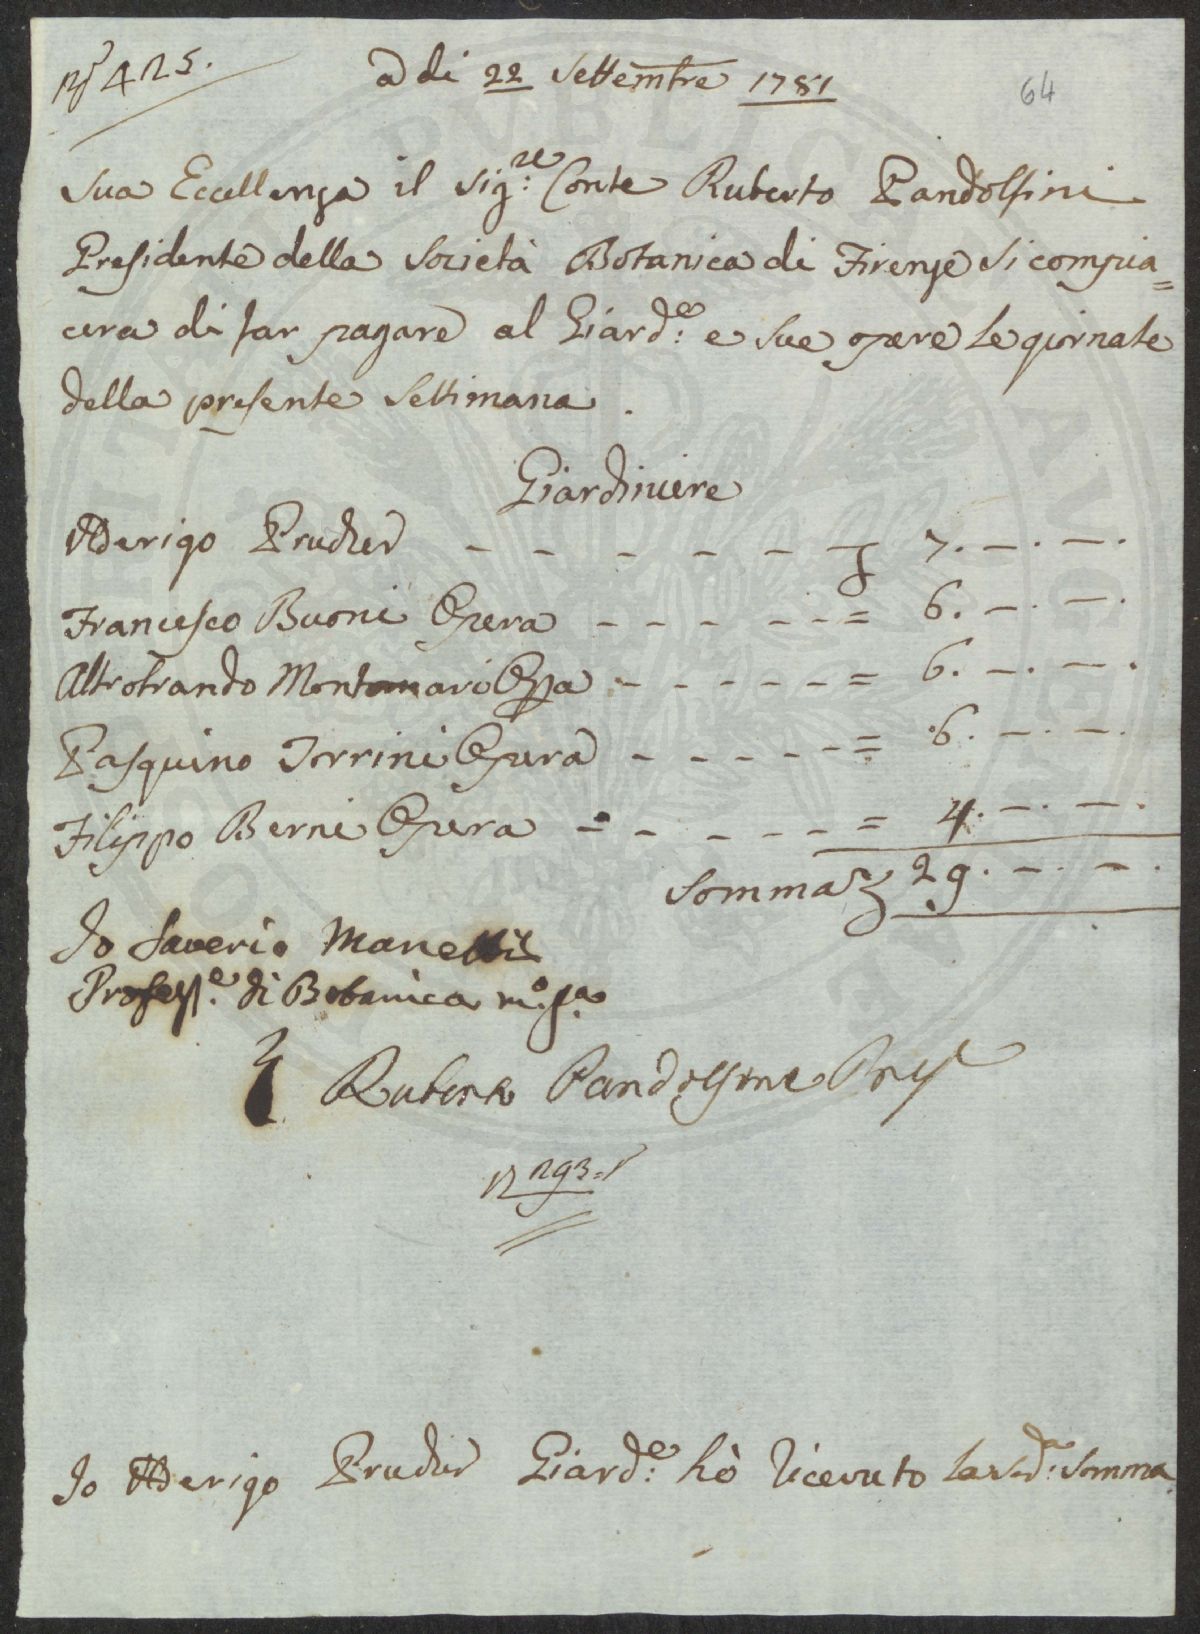 N° 425.
a di 22 Settembre 1781
64
Sua Eccellenza il Sig:re Conte Ruberto Pandolfini
Presidente della Società Botanica di Firenze si compia=
cera di far pagare al Giard:e e sue opere le giornate
della presente Settimana.
Giardiniere
Arrigo Pruder - - - - - £ 7. —. —.
Francesco Buoni Opera - - - - - = 6. —. —.
Altrobrando Montomari Opa - - - - - = 6. —. —.
Pasquino Torrini Opera - - - - - = 6. —. —.
Filippo Berni Opera - - - - - = 4. —. —.
Somma £ 29. —. —.
Io Saverio Manetti
Profess:e di Botanica m:o p:a
Ruberto Pandolfini Pres
293
Io Arrigo Pruder Giard:e hò ricevuto la Sud:a Somma